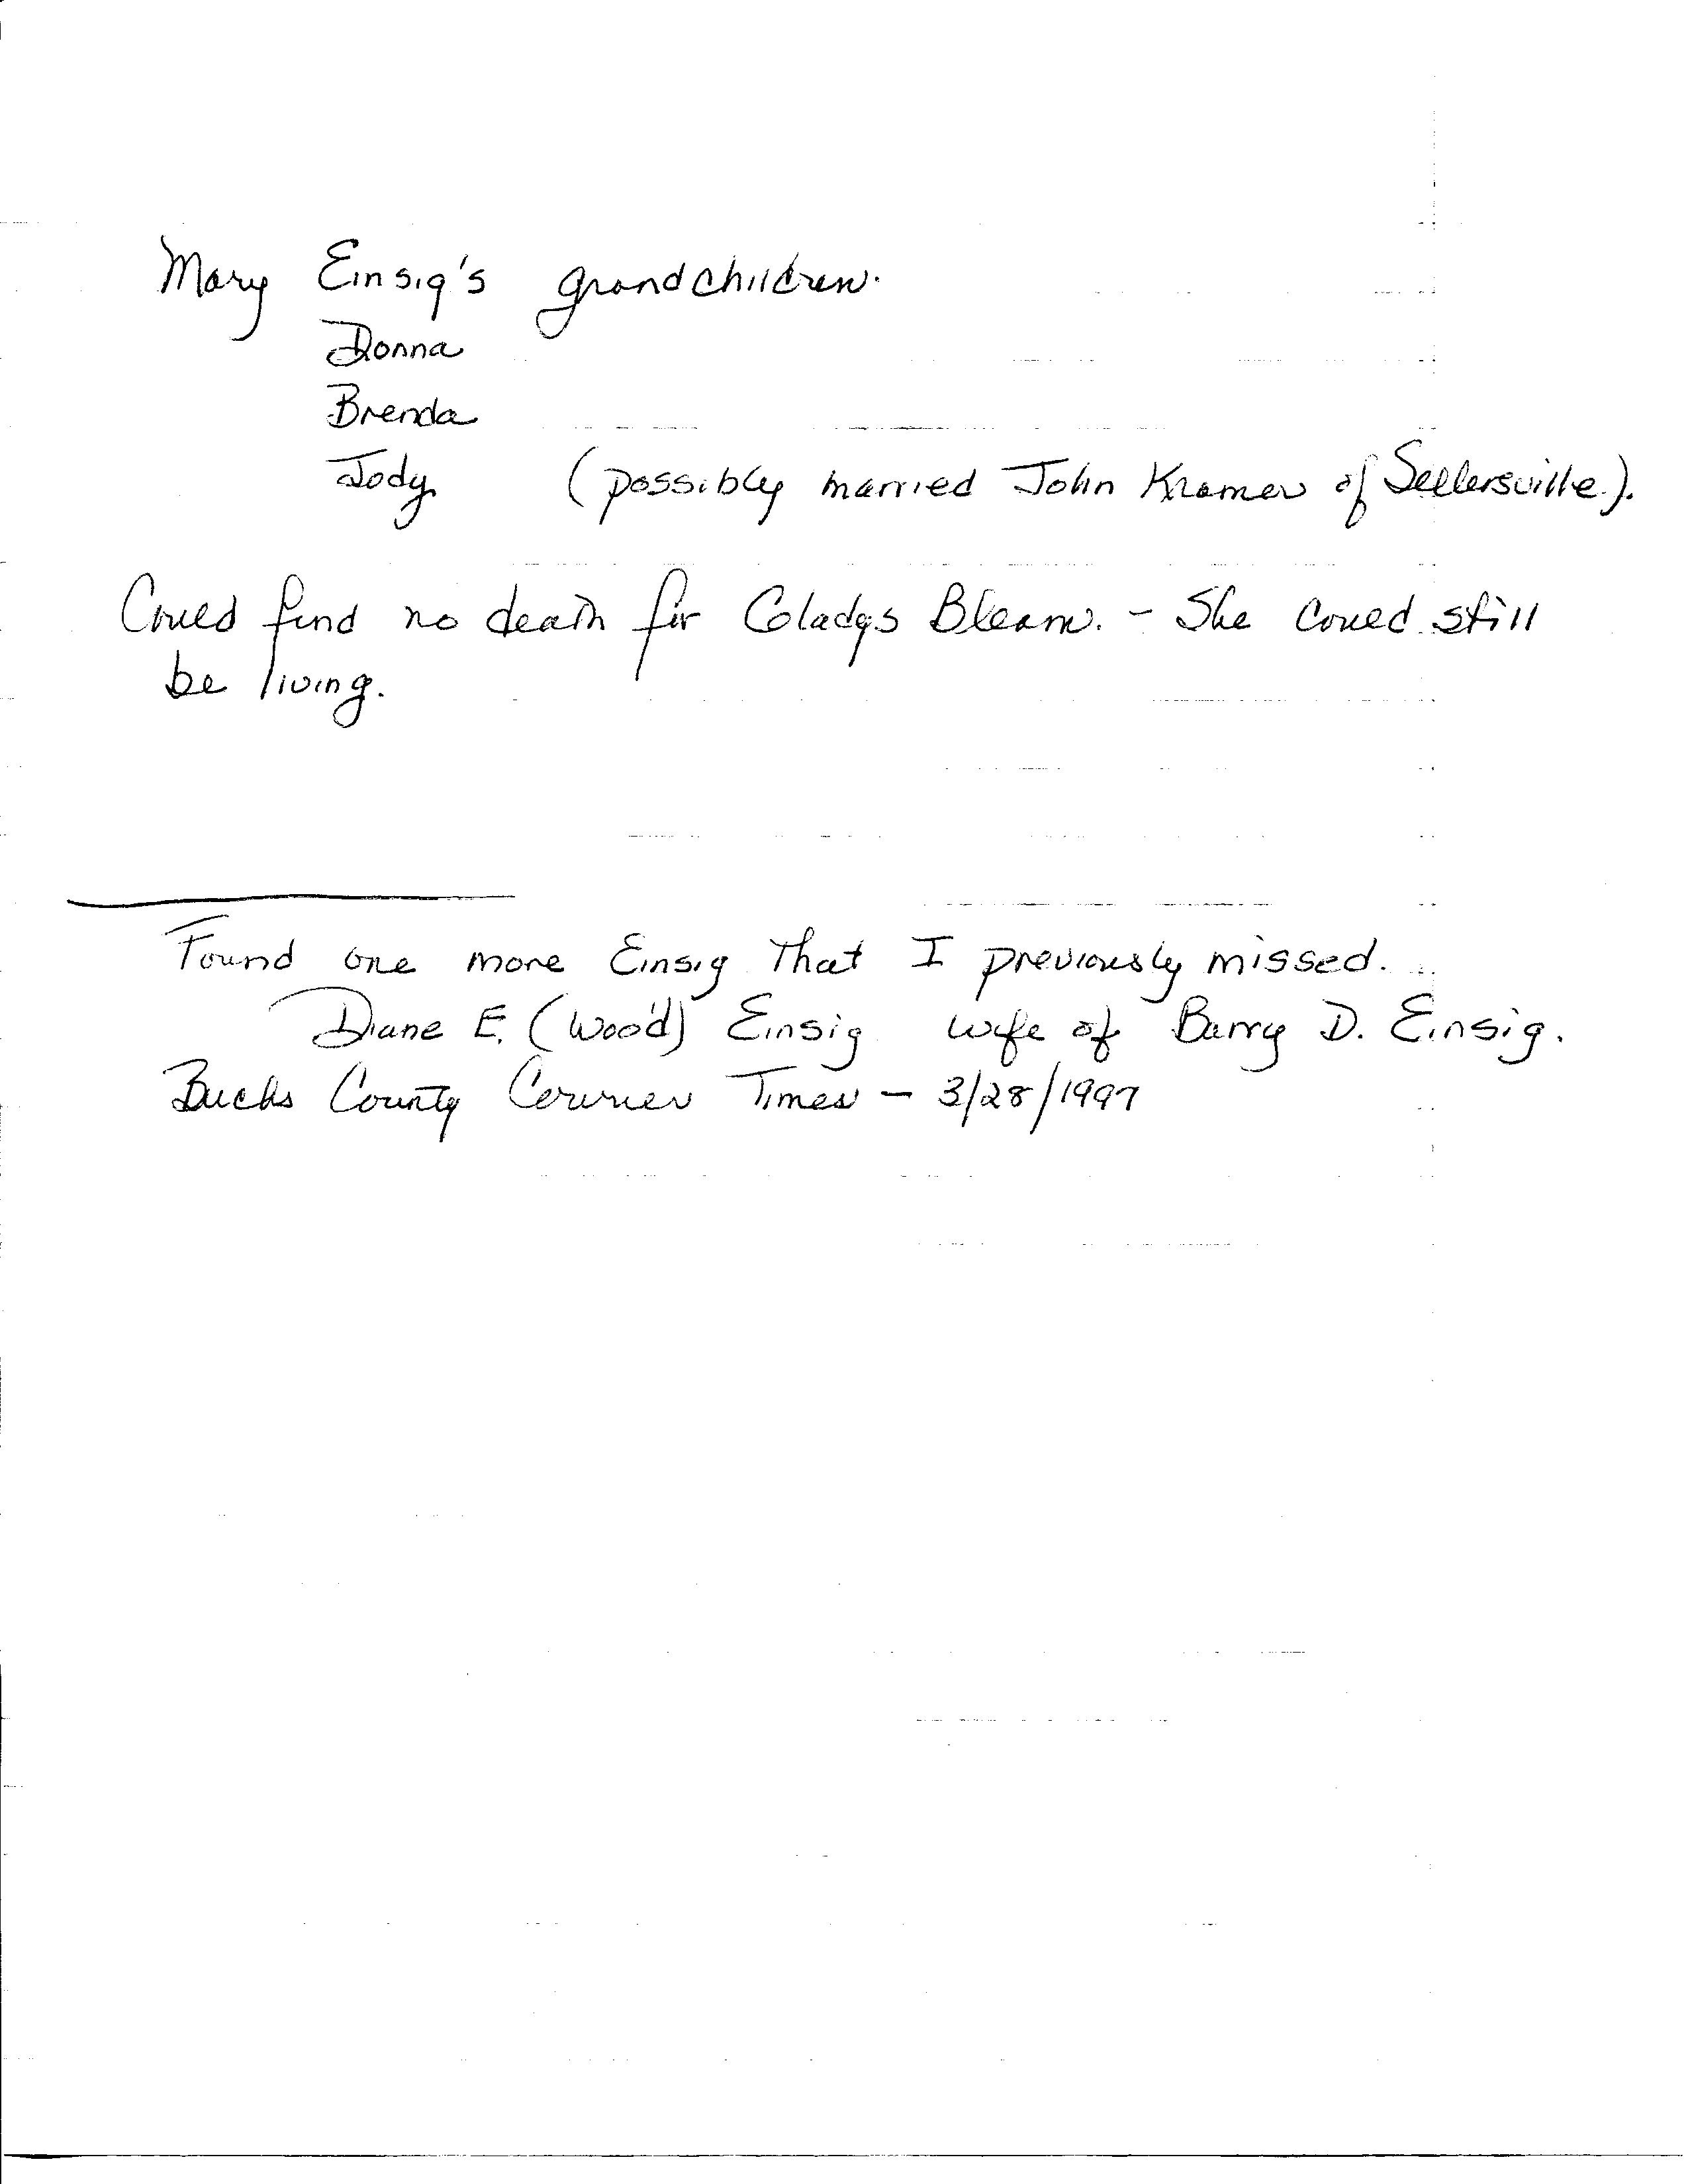 Mary Einsig's grandchildren.
Donna
Brenda
Jody (possibly married John Kramer of Sellersville).
Could find no death for Gladys Bleam. - She could still
be living.
Found one more Einsig that I previously missed.
Diane E. (Wood) Einsig wife of Barry D. Einsig.
Bucks County Courier Times - 3/28/1997